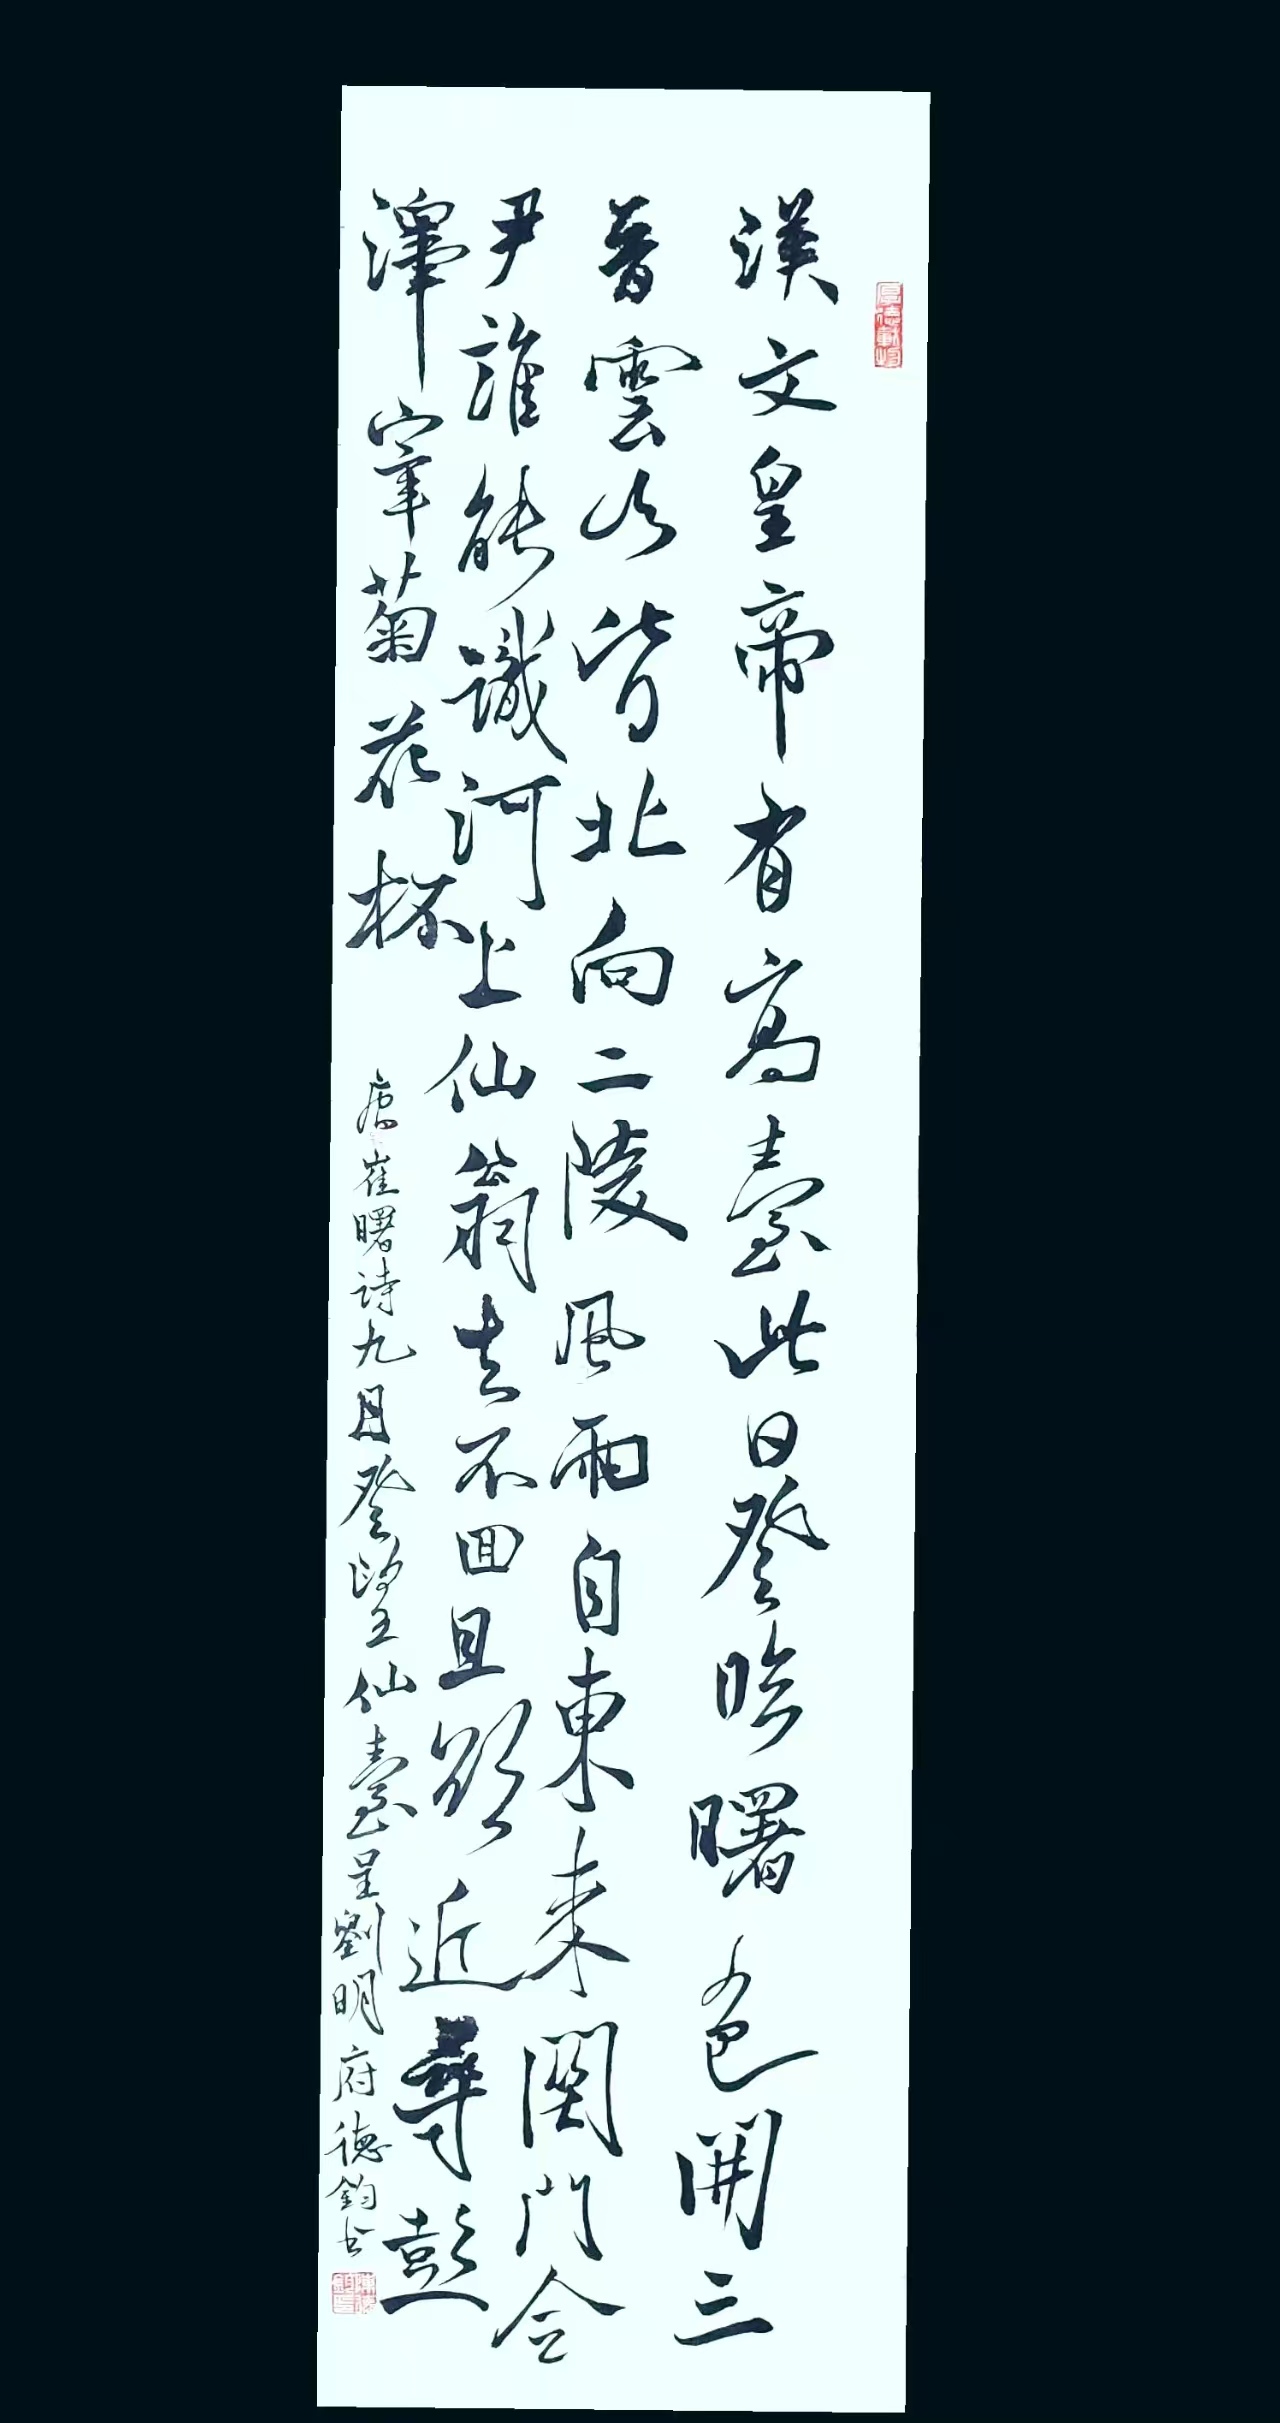 厚德載物
漢文皇帝有高臺此日登臨曙色開三
晉雲山皆北向二陵風雨自東來關門令
尹誰能識河上仙翁去不回且欲近尋彭
澤宰菊花杯
唐崔曙詩九日登望仙臺呈劉明府德鈞書